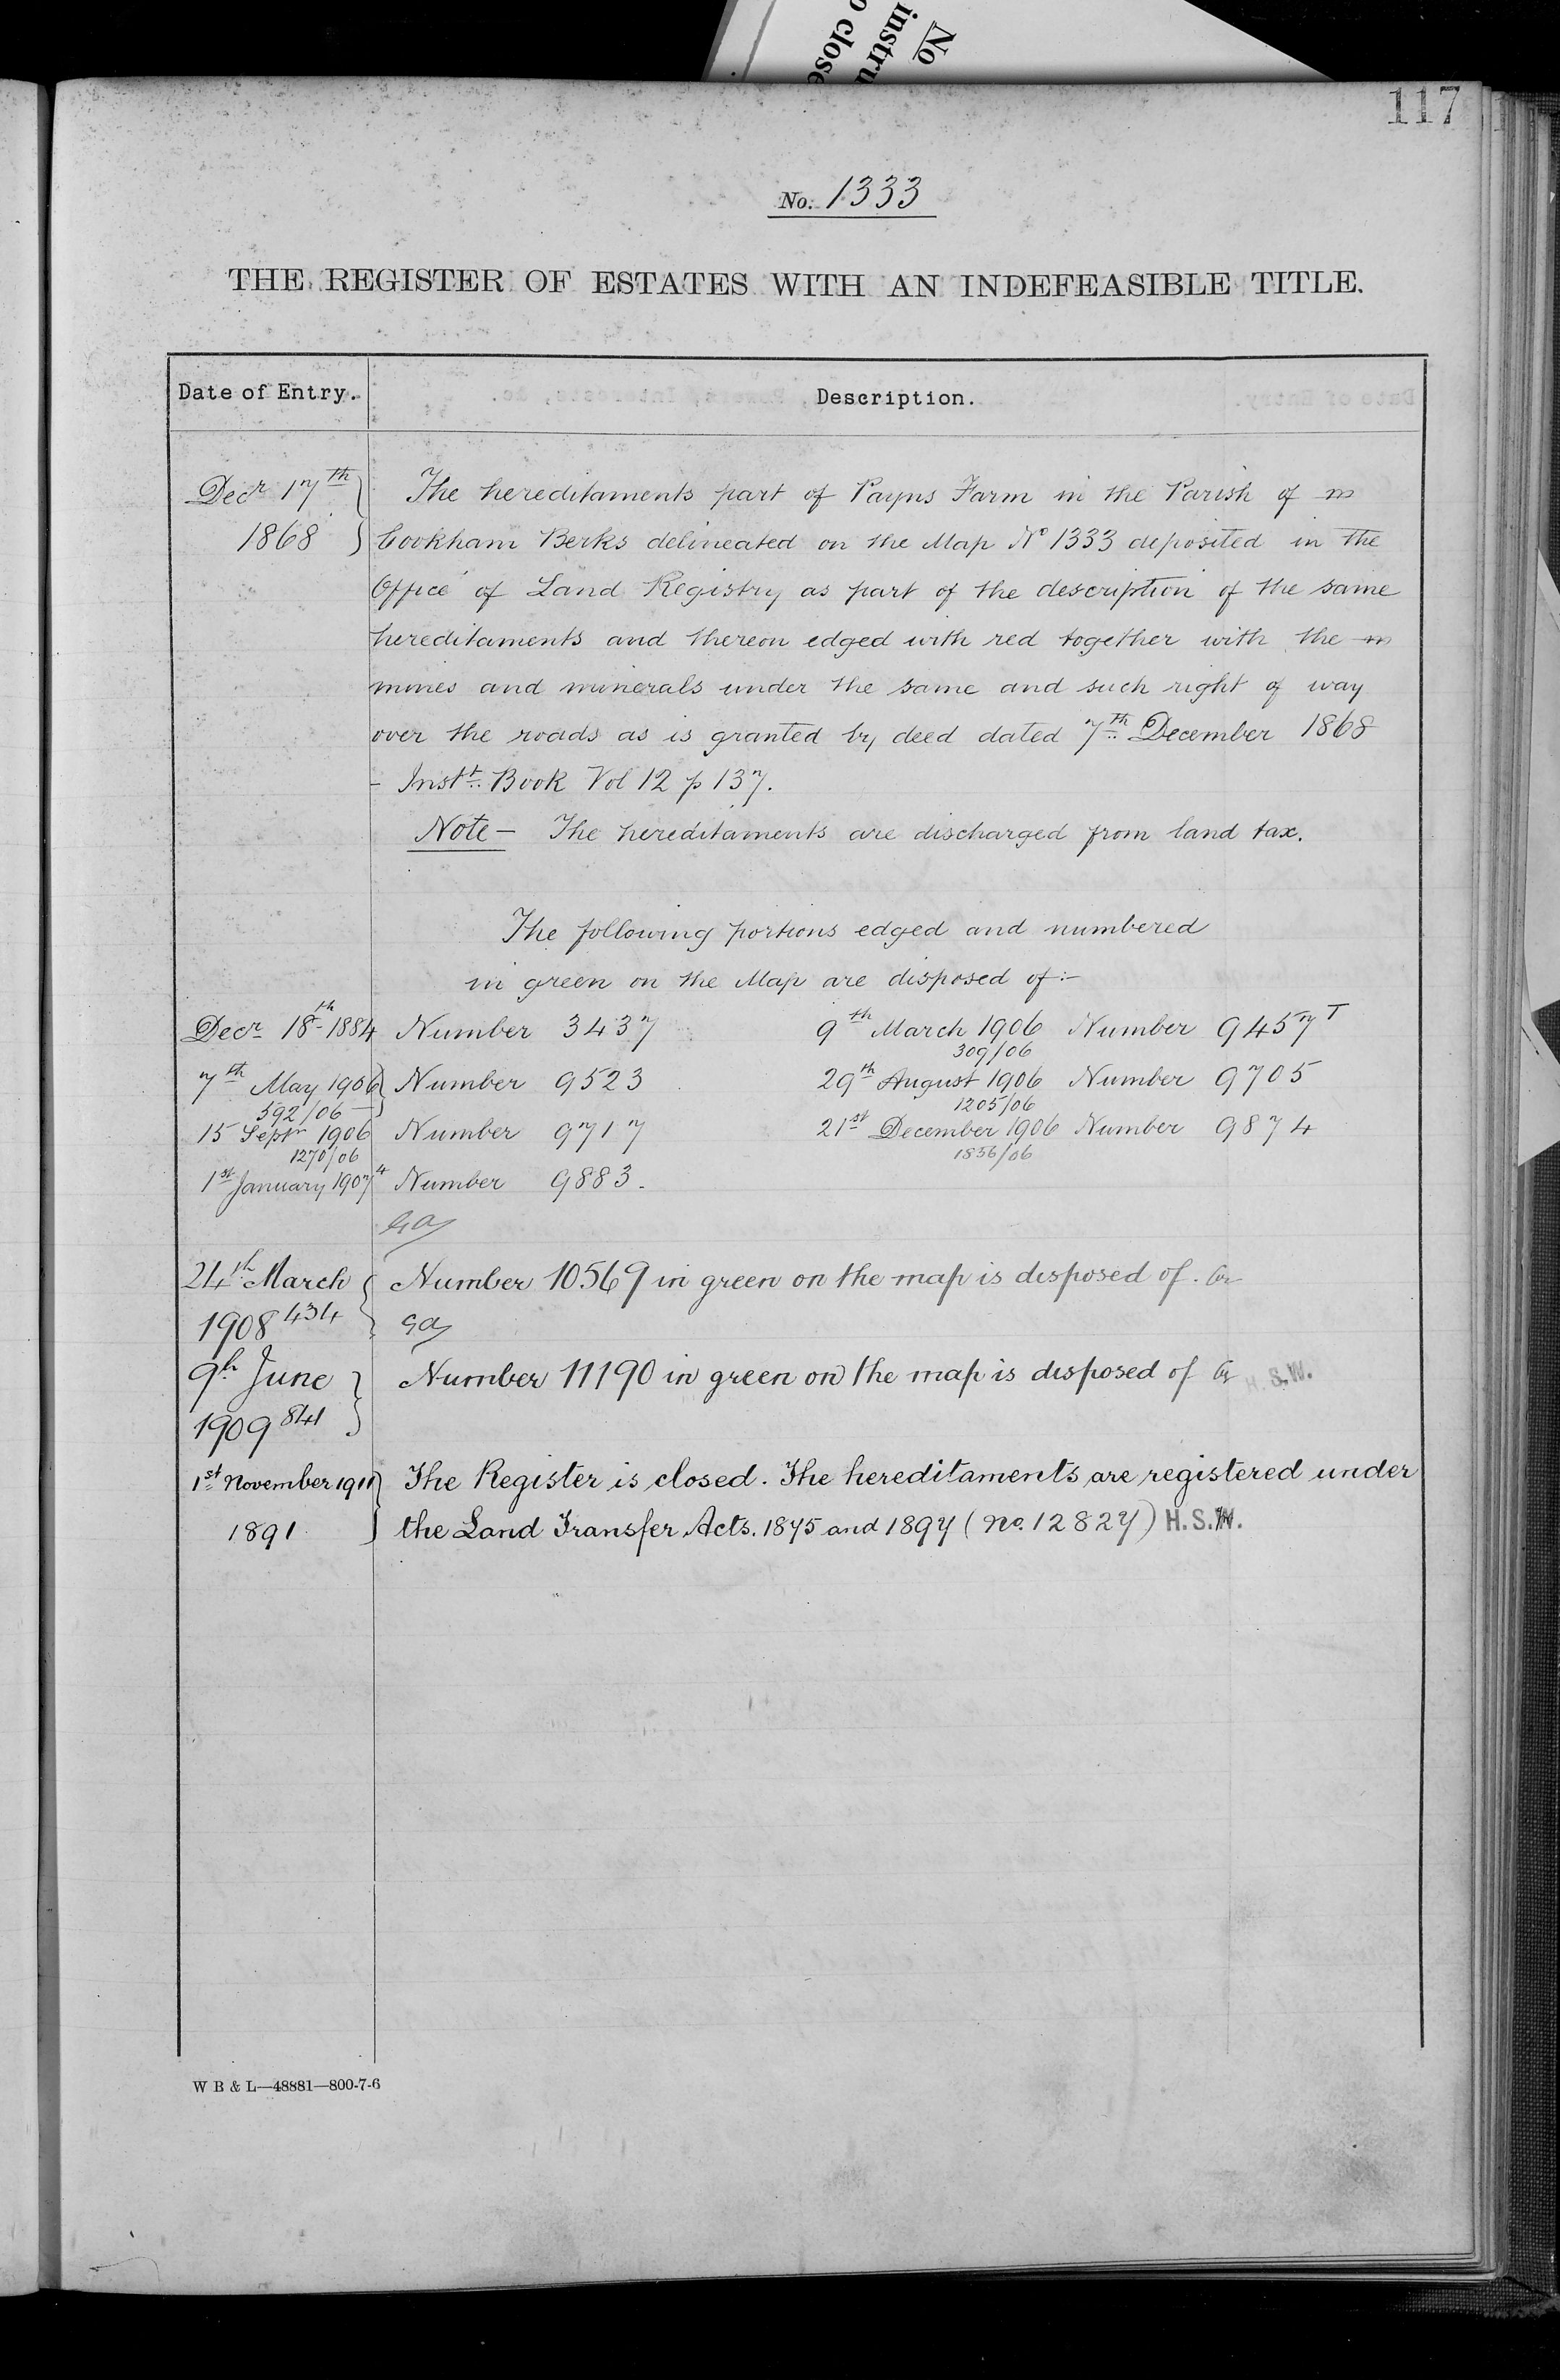 No
instru
o close
117
No. 1333
THE REGISTER OF ESTATES WITH AN INDEFEASIBLE TITLE.
Date of Entry. Description.
Decr 17th The hereditaments part of Payns Farm in the Parish of
1868 Cookham Berks delineated on the Map No 1333 deposited in the
Office of Land Registry as part of the description of the same
hereditaments and thereon edged with red together with the
mines and minerals under the same and such right of way
over the roads as is granted by deed dated 7th December 1868
- Instt. Book Vol 12 p 137.
Note - The hereditaments are discharged from land tax.
The following portions edged and numbered
in green on the Map are disposed of :-
Decr 18th 1884 Number 3437 9th March 1906 Number 9457 T
309/06
7th May 1906 Number 9523 29th August 1906 Number 9705
592/06 1205/06
15 Septr 1906 Number 9717 21st December 1906 Number 9874
1270/06 1836/06
1st January 1907 4 Number 9883.
24th March Number 10569 in green on the map is disposed of.
1908 434
9th June Number 11190 in green on the map is disposed of H.S.W.
1909 841
1st November 1911 The Register is closed. The hereditaments are registered under
1891 the Land Transfer Acts. 1875 and 1897 (No. 12827) H.S.W.
W B & L—48881—800-7-6